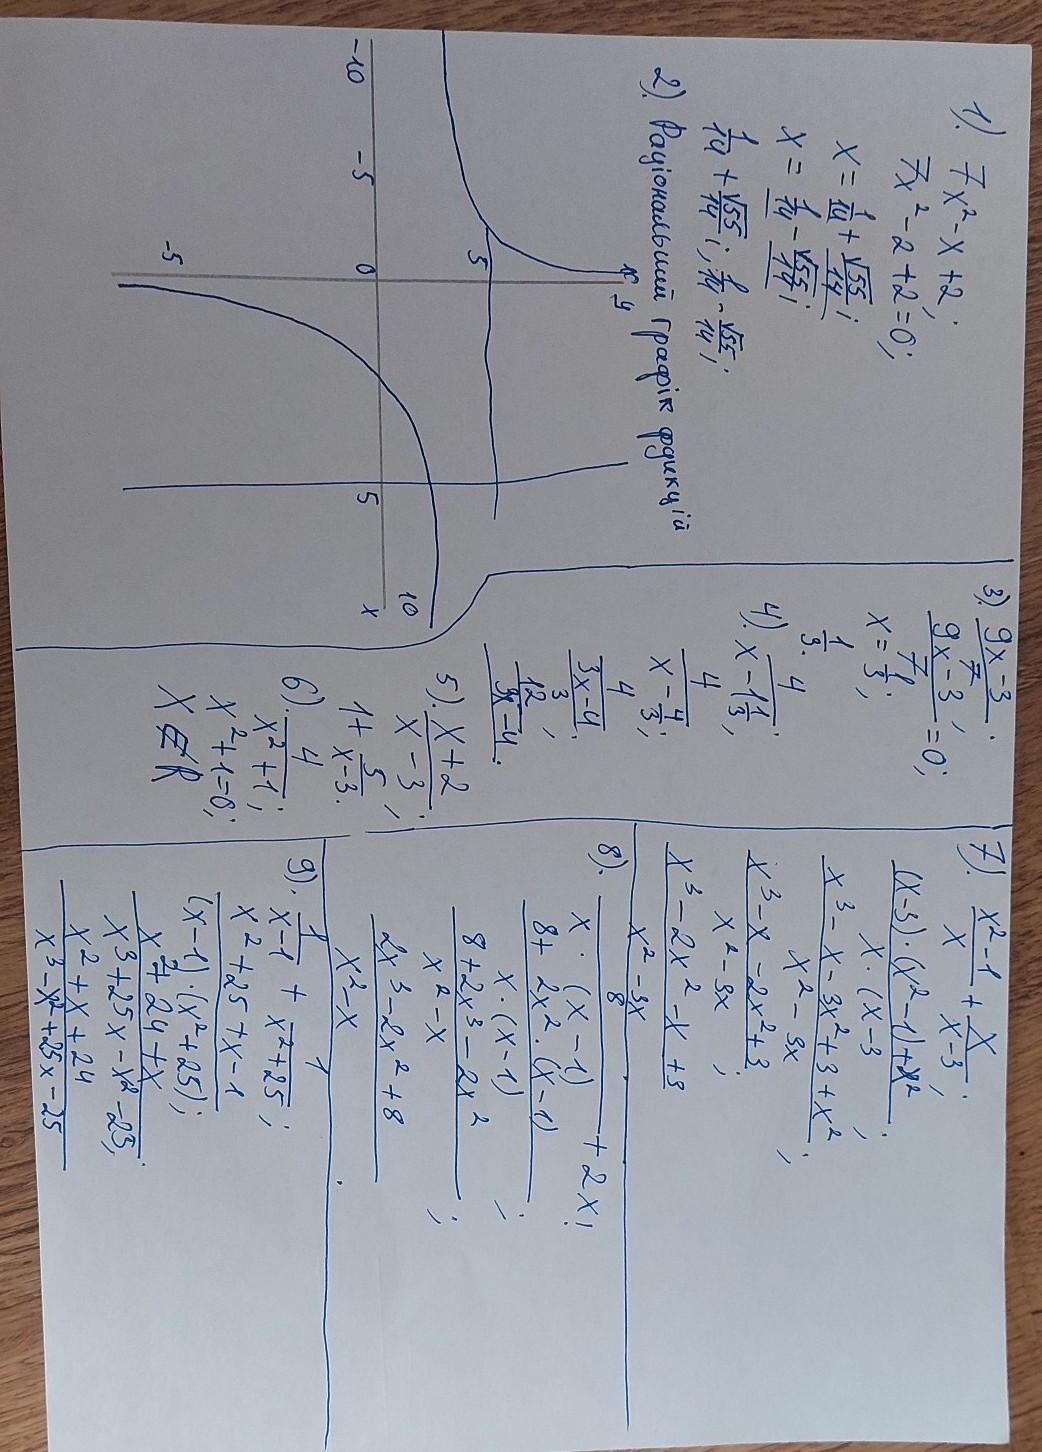 1). 7x² - x + 2;
7x² - 2 + 2 = 0;
x = 1/14 + √55/14 i
x = 1/14 - √55/14 i
1/14 + √55/14 i, 1/14 - √55/14 i
2). Раціональний графік фдикцій
y
5
-10 -5 0 5 10 x
-5
3). 9x-3/7;
9x-3/7 = 0;
x = 1/3;
1/3.
4). 4/x - 1 1/3;
4/x - 4/3;
4/3x-4/3;
12/3x-4.
5). x+2/x-3;
1 + 5/x-3.
6). 4/x²+1;
x² + 1 = 0;
x ∉ R
7). x²-1/x + x/x-3;
(x-3)·(x²-1)+x²/x·(x-3;
x³ - x - 3x² + 3 + x²/x² - 3x;
x³ - x - 2x² + 3/x² - 3x;
x³ - 2x² - x + 3/x² - 3x
8). 8/x·(x-1) + 2x;
8 + 2x²·(x-1)/x·(x-1);
8 + 2x³ - 2x²/x² - x;
2x³ - 2x² + 8/x² - x
9). 1/x-1 + 1/x²+25;
x² + 25 + x - 1/(x-1)·(x²+25);
x² + 24 + x/x³ + 25x - x² - 25;
x² + x + 24/x³ - x² + 25x - 25